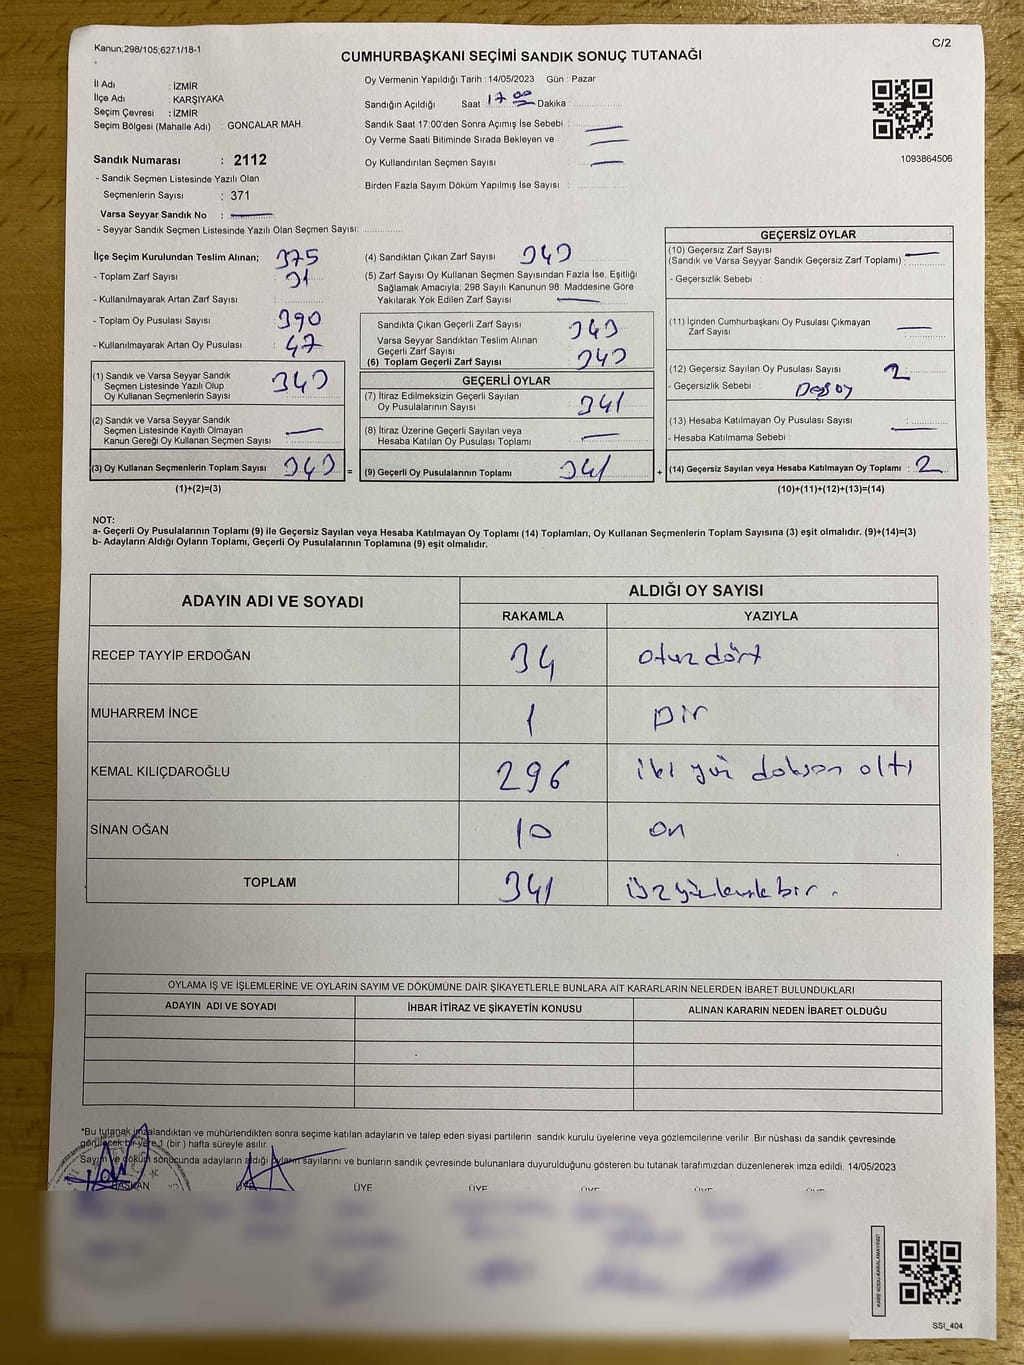 Kanun;298/105;6271/18-1
C/2
CUMHURBAŞKANI SEÇİMİ SANDIK SONUÇ TUTANAĞI
İl Adı : İZMİR
İlçe Adı : KARŞIYAKA
Seçim Çevresi : İZMİR
Seçim Bölgesi (Mahalle Adı) : GONCALAR MAH.
Oy Vermenin Yapıldığı Tarih :14/05/2023 Gün : Pazar
Sandığın Açıldığı Saat 17 00 Dakika :
Sandık Saat 17:00'den Sonra Açımış İse Sebebi : —
Oy Verme Saati Bitiminde Sırada Bekleyen ve —
Oy Kullandırılan Seçmen Sayısı : —
Birden Fazla Sayım Döküm Yapılmış İse Sayısı :
1093864506
Sandık Numarası : 2112
- Sandık Seçmen Listesinde Yazılı Olan
Seçmenlerin Sayısı : 371
Varsa Seyyar Sandık No : —
- Seyyar Sandık Seçmen Listesinde Yazılı Olan Seçmen Sayısı:
İlçe Seçim Kurulundan Teslim Alınan;
- Toplam Zarf Sayısı : 375
- Kullanılmayarak Artan Zarf Sayısı : 31
- Toplam Oy Pusulası Sayısı : 390
- Kullanılmayarak Artan Oy Pusulası : 47
(1) Sandık ve Varsa Seyyar Sandık
Seçmen Listesinde Yazılı Olup
Oy Kullanan Seçmenlerin Sayısı : 343
(2) Sandık ve Varsa Seyyar Sandık
Seçmen Listesinde Kayıtlı Olmayan
Kanun Gereği Oy Kullanan Seçmen Sayısı : —
(3) Oy Kullanan Seçmenlerin Toplam Sayısı : 343
(1)+(2)=(3)
(4) Sandıktan Çıkan Zarf Sayısı : 343
(5) Zarf Sayısı Oy Kullanan Seçmen Sayısından Fazla İse, Eşitliği
Sağlamak Amacıyla; 298 Sayılı Kanunun 98. Maddesine Göre
Yakılarak Yok Edilen Zarf Sayısı : —
Sandıkta Çıkan Geçerli Zarf Sayısı : 343
Varsa Seyyar Sandıktan Teslim Alınan
Geçerli Zarf Sayısı :
(6) Toplam Geçerli Zarf Sayısı : 343
GEÇERLİ OYLAR
(7) İtiraz Edilmeksizin Geçerli Sayılan
Oy Pusulalarının Sayısı : 341
(8) İtiraz Üzerine Geçerli Sayılan veya
Hesaba Katılan Oy Pusulası Toplamı : —
= (9) Geçerli Oy Pusulalarının Toplamı : 341
GEÇERSİZ OYLAR
(10) Geçersiz Zarf Sayısı
(Sandık ve Varsa Seyyar Sandık Geçersiz Zarf Toplamı) : —
- Geçersizlik Sebebi :
(11) İçinden Cumhurbaşkanı Oy Pusulası Çıkmayan
Zarf Sayısı : —
(12) Geçersiz Sayılan Oy Pusulası Sayısı : 2
- Geçersizlik Sebebi :
(13) Hesaba Katılmayan Oy Pusulası Sayısı : —
- Hesaba Katılmama Sebebi :
+ (14) Geçersiz Sayılan veya Hesaba Katılmayan Oy Toplamı : 2
(10)+(11)+(12)+(13)=(14)
NOT:
a- Geçerli Oy Pusulalarının Toplamı (9) ile Geçersiz Sayılan veya Hesaba Katılmayan Oy Toplamı (14) Toplamları, Oy Kullanan Seçmenlerin Toplam Sayısına (3) eşit olmalıdır. (9)+(14)=(3)
b- Adayların Aldığı Oyların Toplamı, Geçerli Oy Pusulalarının Toplamına (9) eşit olmalıdır.
ADAYIN ADI VE SOYADI
ALDIĞI OY SAYISI
RAKAMLA YAZIYLA
RECEP TAYYİP ERDOĞAN 34 otuz dört
MUHARREM İNCE 1 bir
KEMAL KILIÇDAROĞLU 296 iki yüz doksan altı
SİNAN OĞAN 10 on
TOPLAM 341
OYLAMA İŞ VE İŞLEMLERİNE VE OYLARIN SAYIM VE DÖKÜMÜNE DAİR ŞİKAYETLERLE BUNLARA AİT KARARLARIN NELERDEN İBARET BULUNDUKLARI
ADAYIN ADI VE SOYADI İHBAR İTİRAZ VE ŞİKAYETİN KONUSU ALINAN KARARIN NEDEN İBARET OLDUĞU
*Bu tutanak imzalandıktan ve mühürlendikten sonra seçime katılan adayların ve talep eden siyasi partilerin sandık kurulu üyelerine veya gözlemcilerine verilir Bir nüshası da sandık çevresinde
görülecek bir yere 1 (bir ) hafta süreyle asılır.
Sayım ve döküm sonucunda adayların aldığı oyların sayılarını ve bunların sandık çevresinde bulunanlara duyurulduğunu gösteren bu tutanak tarafımızdan düzenlenerek imza edildi. 14/05/2023
BAŞKAN ÜYE ÜYE ÜYE ÜYE ÜYE ÜYE
KARE KODU KARALAMAYINIZ!
SSI_404